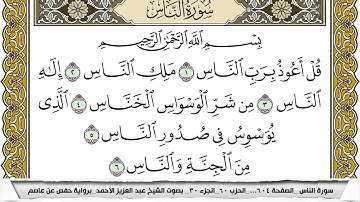 سُورَةُ النَّاسِ
بِسْمِ اللَّهِ الرَّحْمَٰنِ الرَّحِيمِ
قُلْ أَعُوذُ بِرَبِّ النَّاسِ ١ مَلِكِ النَّاسِ ٢ إِلَٰهِ
النَّاسِ ٣ مِن شَرِّ الْوَسْوَاسِ الْخَنَّاسِ ٤ الَّذِي
يُوَسْوِسُ فِي صُدُورِ النَّاسِ ٥
مِنَ الْجِنَّةِ وَالنَّاسِ ٦
سورة الناس _الصفحة ٦٠٤_... الحزب ٦٠_الجزء ٣٠_ بصوت الشيخ عبد العزيز الأحمد_ برواية حفص عن عاصم